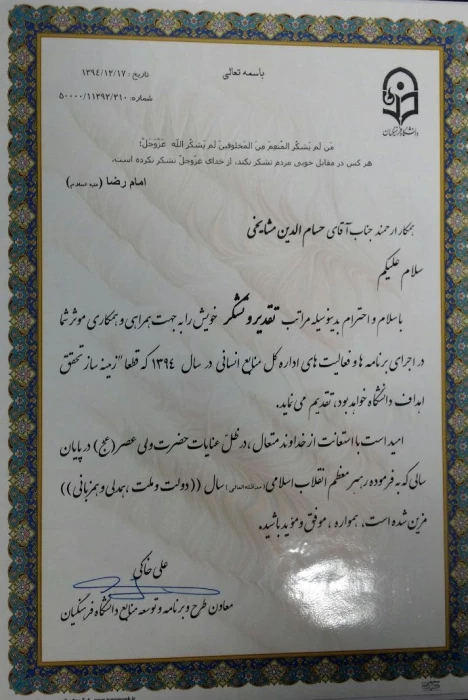 باسمه تعالی
تاریخ: ۱۳۹٤/۱۲/۱۷
شماره: ٥۰۰۰۰/۱۱۳۹۲/۲۱۰
دانشگاه فرهنگیان
مَن لَم یَشکُرِ المُنعِمَ مِنَ المَخلوقینَ لَم یَشکُرِ اللهَ عَزَّوَجَلَّ؛
هر کس در مقابل خوبی مردم تشکر نکند، از خدای عزوجل تشکر نکرده است.
امام رضا (علیه السلام)
همکار ارجمند جناب آقای حسام الدین مشایخی
سلام علیکم
با سلام و احترام بدینوسیله مراتب تقدیر و تشکر خویش را به جهت همراهی و همکاری موثر شما
در اجرای برنامه ها و فعالیت های اداره کل منابع انسانی در سال ۱۳۹٤ که قطعا" زمینه ساز تحقق
اهداف دانشگاه خواهد بود، تقدیم می نماید.
امید است با استعانت از خداوند متعال ، در ظلّ عنایات حضرت ولی عصر (عج) در پایان
سالی که به فرموده رهبر معظم انقلاب اسلامی (مدظله العالی) سال ((دولت و ملت ، همدلی و همزبانی))
مزین شده است، همواره ، موفق و مؤید باشید.
علی خاکی
معاون طرح و برنامه و توسعه منابع دانشگاه فرهنگیان